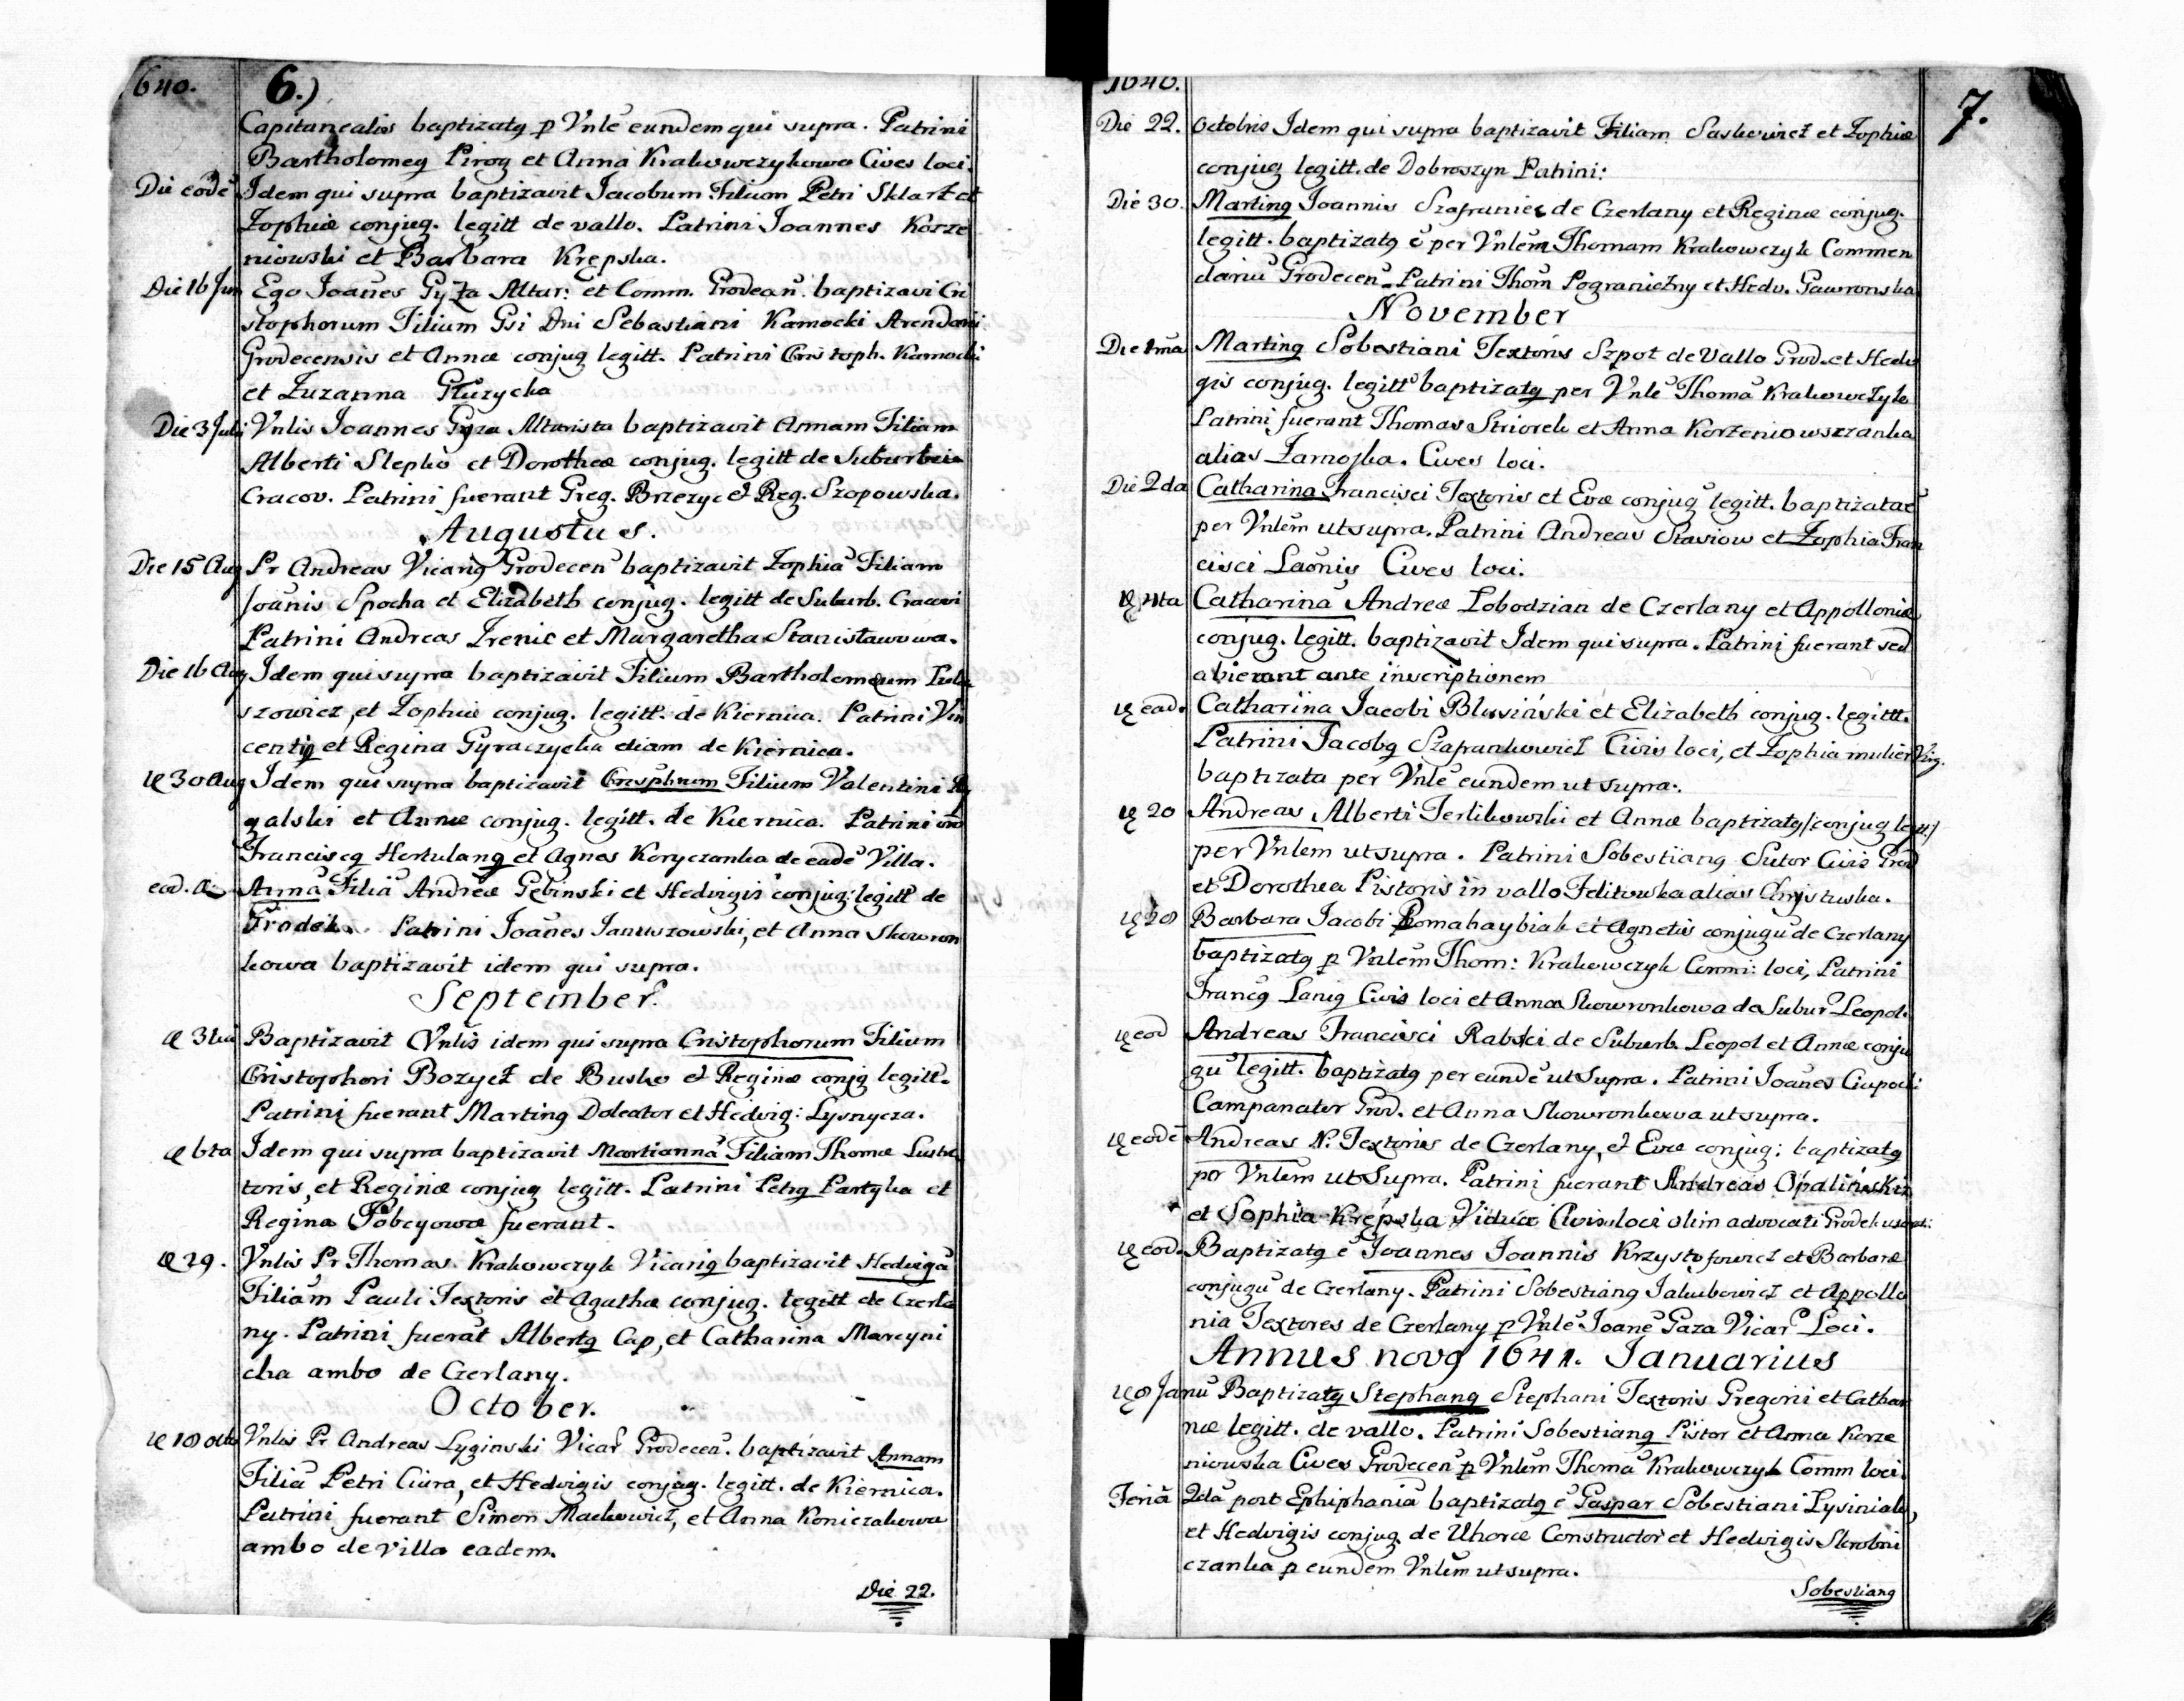 640. 6.)
Capitanealis baptizatq p Vnlē eundem qui supra. Patrini
Bartholomeq Pirog et Anna Krakowczykowa Cives loci.
Die eodē Idem qui supra baptizavit Jacobum Filium Petri Sklarz et
Zophiæ conjug. legitt de vallo. Patrini Joannes Korze
niowski et Barbara Krępska.
Die 16 Jun Ego Joañes Gyza Altar: et Comm. Grodecañ. baptizavi Cri
stophorum Filium Gsi Dni Sebastiani Kamocki Arendarii
Grodecensis et Annæ conjug legitt. Patrini Cristoph. Kamocki
et Zuzanna Głuzycka
Die 3 Juli Vnlis Joannes Gyza Altarista baptizavit Annam Filiam
Alberti Slepko et Dorotheæ conjug. legitt de Suburbeio
Cracov. Patrini fuerant Greg. Brzezyc et Reg. Szopowska.
Augustus.
Die 15 Aug Pr Andreas Vicariq Grodecen baptizavit Zophiā Filiam
Joānis Spocha et Elizabeth conjug. legitt de Suburb. Cracovi
Patrini Andreas Irenic et Margaretha Stanisławowa.
Die 16 Aug Idem qui supra baptizavit Filium Bartholemæum
szowicz, et Zophiæ conjug. legitt. de Kiernica. Patrini Vin
centiq et Regina Gyraczycka etiam de Kiernica.
30 Aug Idem qui supra baptizavit Crisphrum Filium Valentini
galski et Annæ conjug. legitt. de Kiernica. Patrini
Franciscq Herkulanq et Agnes Koryczanka de eadē Villa.
eod. Annā Filiā Andreæ Gębinski et Hedvigis conjug: legitt de
Grodek. Patrini Joāñes Januszowski, et Anna Skowron
kowa baptizavit idem qui supra.
September.
3tia Baptizavit Vnlis idem qui supra Cristophorum Filium
Cristophori Bozycz de Busko et Reginæ conjg legitt.
Patrini fuerant Martinq Doleator et Hedvig: Lysnycza.
6ta Idem qui supra baptizavit Mariannā Filiam Thomæ Lustra
toris, et Reginæ conjug legitt. Patrini Petrq Partyka et
Regina Pobeyowa fuerant.
29. Vnlis Pr Thomas. Krakowczyk Vicariq baptizavit Hedvigā
Filiām Pauli Textoris et Agathæ conjug. legitt de Czerla
ny. Patrini fuerāt Albertq Cap, et Catharina Marcyni
cha ambo de Czerlany.
October.
18 octo Vnlis Pr Andreas Lyginski Vicar Grodecen. baptizavit Annam
Filiā Petri Ciura, et Hedvigis conjug. legitt. de Kiernica.
Patrini fuerant Simon Mackowicz, et Anna Koniczakowa
ambo de villa eadem.
Die 22.
1640. 7.
Die 22. Octobris Idem qui supra baptizavit Filiam Saskowicz et Zophiæ
conjug legitt. de Dobroszyn Patrini:
Die 30. Martinq Joannis Szafraniec de Czerlany et Reginæ conjug.
legitt. baptizatq ē per Vnlēm Thomam Krakowczyk Commen
dariū Grodecen. Patrini Thom Pograniczny et Hedv. Gawronska
November
Die 1ma Martinq Sobestiani Textoris Szpot de Vallo Grod. et Hedv
gis conjug. legitt baptizatq per Vnlē Thomā Krakowczyk
Patrini fuerant Thomas Striorek et Anna Korzeniowszzanka
alias Zamojska. Cives loci.
Die 2da Catharina Francisci Textoris et Evæ conjug legitt. baptizataē
per Vnlēm ut supra. Patrini Andreas Stasiow et Zophia Fran
cisci Laōnis Cives loci.
4ta Catharinā Andreæ Lobodzian de Czerlany et Appolloniæ
conjug. legitt. baptizavit Idem qui supra. Patrini fuerant sed
abierant ante inscriptionem
ead. Catharina Jacobi Blusiński et Elizabeth conjug. legittt.
Patrini Jacobq Szafrankowicz Civis loci, et Zophia mulier Virg.
baptizata per Vnlē eundem ut supra.
20 Andreas Alberti Terlikowski et Annæ baptizatq /:conjug legitt:/
per Vnlem ut supra. Patrini Sobestianq Sutor Civis Grod
et Dorothea Pistoris in vallo Felitowka alias Chrystuska.
28 Barbara Jacobi Pomahaybiak et Agnetis conjugū de Czerlany
baptizatq p Vnlēm Thom: Krakowczyk Comm: loci, Patrini
Francq Laniq Civis loci et Anna Skowronkowa de Subur Leopol.
eod Andreas Francisci Rabski de Suburb. Leopol et Annæ conju
gū legitt. baptizatq per eundē ut Supra. Patrini Joānes Ciapocki
Campanator Grod. et Anna Skowronkowa ut supra.
eodē Andreas N. Textoris de Czerlany, et Evæ conjug: baptizatq
per Vnlēm ut Supra. Patrini fuerant Andreas Opalinski
et Sophia Krępska Vidua Civis loci olim advocati
eod. Baptizatq ē Joannes Joannis Krzysztofowicz et Barbaræ
conjugū de Czerlany. Patrini Sobestianq Jakubowicz et Appollo
nia Textores de Czerlany p Vnlē Joanē Gaza Vicar Loci.
Annus novq 1641. Januarius
8 Janu Baptizatq Stephanq Stephani Textoris Gregorii et Cathar
næ legitt. de vallo. Patrini Sobestianq Pistor et Anna Korze
niowska Cives Grodecen p Vnlēm Thomā Krakowczyk Comm loci.
Feriā 2dā post Ephiphaniā baptizatq ē Gaspar Sobestiani Lysiniak,
et Hedvigis conjug. de Uhorce Constructor et Hedvigis Skrobni
czanka p eundem Vnlēm ut supra.
Sobestianq